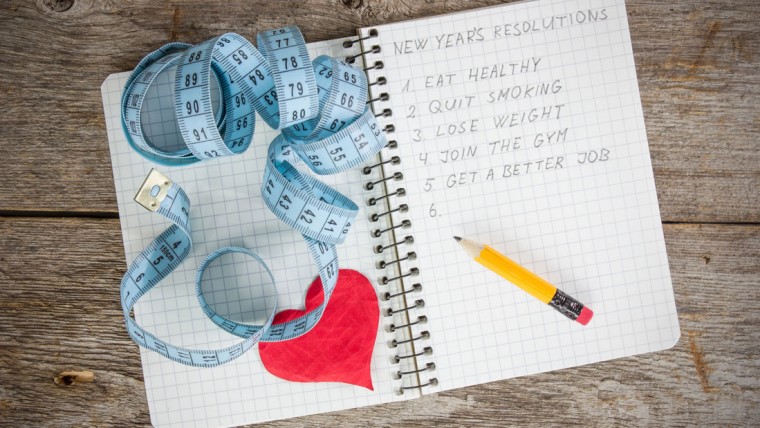 NEW YEAR'S RESOLUTIONS
1. EAT HEALTHY
2. QUIT SMOKING
3. LOSE WEIGHT
4. JOIN THE GYM
5 GET A BETTER JOB
6.
88
89
90
91
77
78
79
80
83
84
66
65
64
95
96
54
55
56
44
43
42
41
4
5
6